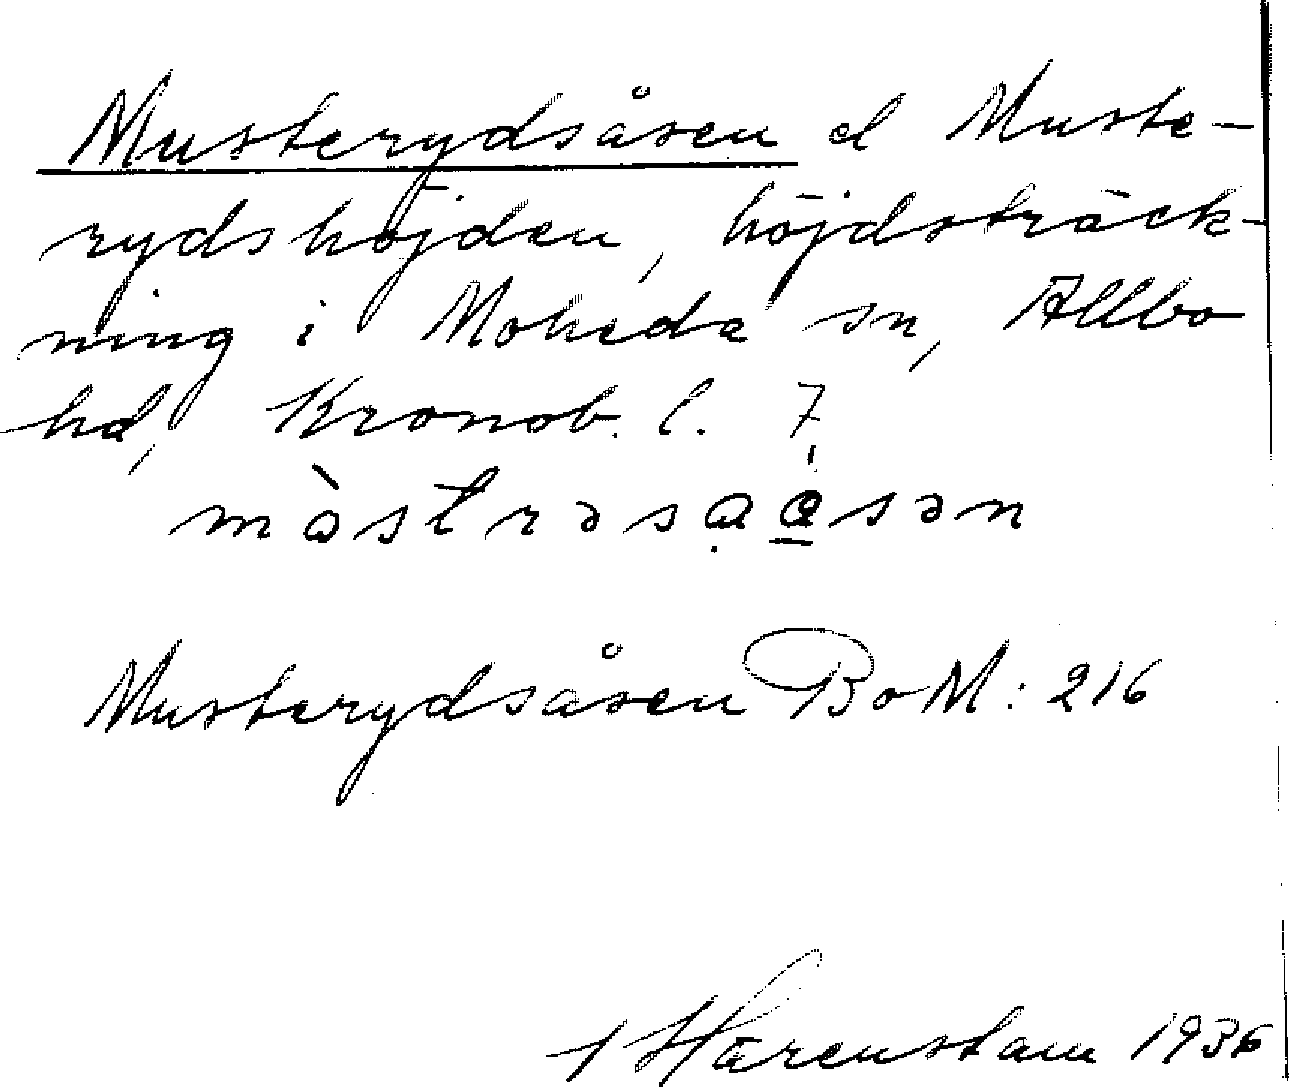 Musterydsåsen el Muste-
rydshöjden, höjdsträck-
ning i Moheda sn, Allbo
hd, Kronob. l. 7
Musterydsåsen BoM: 216
Härenstam 1936